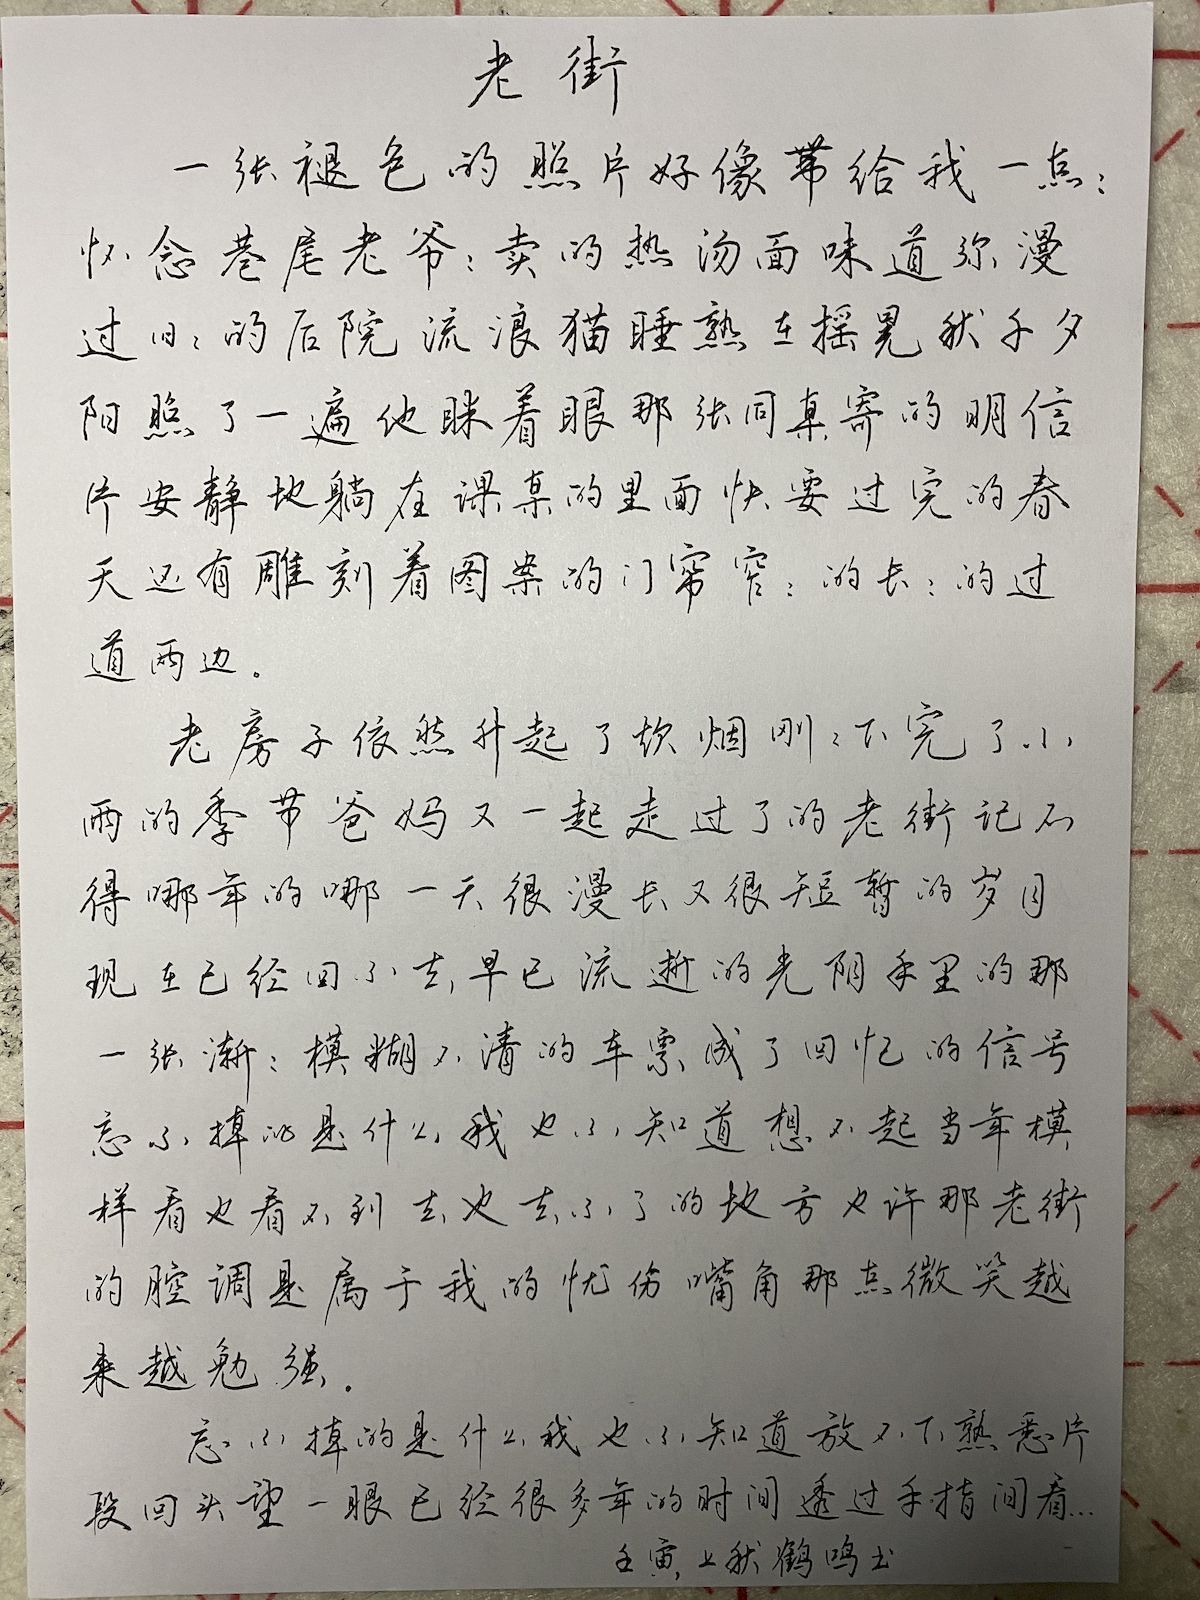 老街
一张褪色的照片好像带给我一点：
怀念巷尾老爷：卖的热汤面味道弥漫
过旧：的后院流浪猫睡熟在摇晃秋千夕
阳照了一遍他眯着眼那张同桌寄的明信
片安静地躺在课桌的里面快要过完的春
天还有雕刻着图案的门帘窄：的长：的过
道两边。
老房子依然升起了炊烟刚：下完了小
雨的季节爸妈又一起走过了的老街记不
得哪年的哪一天很漫长又很短暂的岁月
现在已经回不去早已流逝的光阴手里的那
一张渐：模糊不清的车票成了回忆的信号
忘不掉的是什么我也不知道想不起当年模
样看也看不到去也去不了的地方也许那老街
的腔调是属于我的忧伤嘴角那点微笑越
来越勉强.
忘不掉的是什么我也不知道放不下熟悉片
段回头望一眼已经很多年的时间透过手指间看…
壬寅上秋鹤鸣书